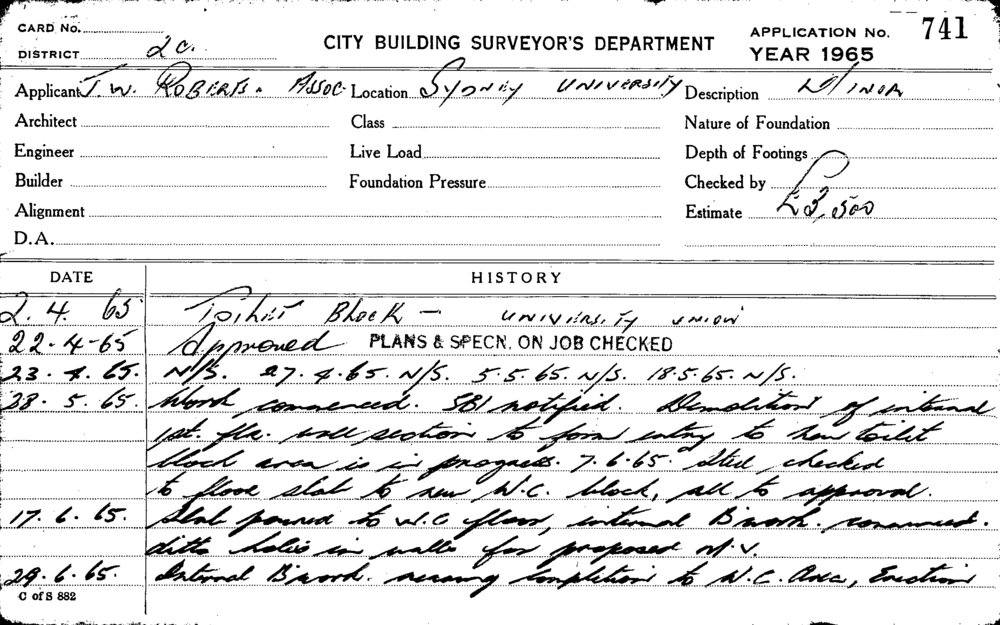 CARD No.
DISTRICT 2c.
CITY BUILDING SURVEYOR'S DEPARTMENT
APPLICATION No. 741
YEAR 1965
Applicant T. W. ROBERTS. ASSOC. Location SYDNEY UNIVERSITY Description MINOR
Architect Class Nature of Foundation
Engineer Live Load Depth of Footings
Builder Foundation Pressure Checked by
Alignment Estimate £3,500
D.A.
DATE HISTORY
2. 4. 65 Toilet Block — UNIVERSITY UNION
22-4-65 Approved PLANS & SPECN. ON JOB CHECKED
23. 4. 65. N/S. 27. 4. 65. N/S. 5.5.65. N/S. 18.5.65. N/S.
28. 5. 65. Work commenced. SBI notified. Demolition of internal
1st. flr. wall section to form entry to new toilet
block area is in progress. 7.6.65. Steel checked
to floor slab to new W.C. block, all to approval.
17. 6. 65. Slab poured to W.C floor, internal B'work. commenced.
ditto holes in walls for proposed M.V.
29. 6. 65. Internal B'work. nearing completion to W.C. Area, Erection
C of S 882